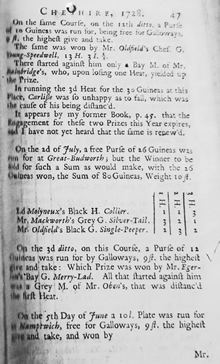 CHESHIRE, 1728. 47
On the same Course, on the 12th ditto, a Purse
of 10 Guineas was run for, being free for Galloways,
9 ft. the highest give and take.
The same was won by Mr. Oldfield's Chef. G.
Bung-Speedwell, 13 H. 1/2
There started against him only a Bay M. of Mr.
Bainbridge's, who, upon losing one Heat, yielded up
the Prize.
In running the 3d Heat for the 30 Guineas at this
Place, Carlisle was so unhappy as to fail, which was
the cause of his being distanc'd.
It appears by my former Book, p. 45. that the
Engagement for these two Prizes this Year expires,
and I have not yet heard that the same is renew'd.
On the 2d of July, a free Purse of 26 Guineas was
run for at Great-Budworth; but the Winner to be
sold for such a Sum as would make, with the 26
Guineas won, the Sum of 80 Guineas, Weight 10st.
Ld Molyneux's Black H. Collier. 1 3 1
Mr. Mackworth's Grey G. Silver-Tail.
Mr. Oldfield's Black G. Single-Peeper.
On the 3d ditto, on this Course, a Purse of 12
Guineas was run for by Galloways, 9ft. the highest
give and take: Which Prize was won by Mr. Eger-
Bay G. Merry-Lad. All that started against him
was a Grey M. of Mr. Oken's, that was distanc'd
the first Heat.
On the 5th Day of June a 10l. Plate was run for
at Namptwich, free for Galloways, 9ft. the highest
give and take, and won by
Mr.